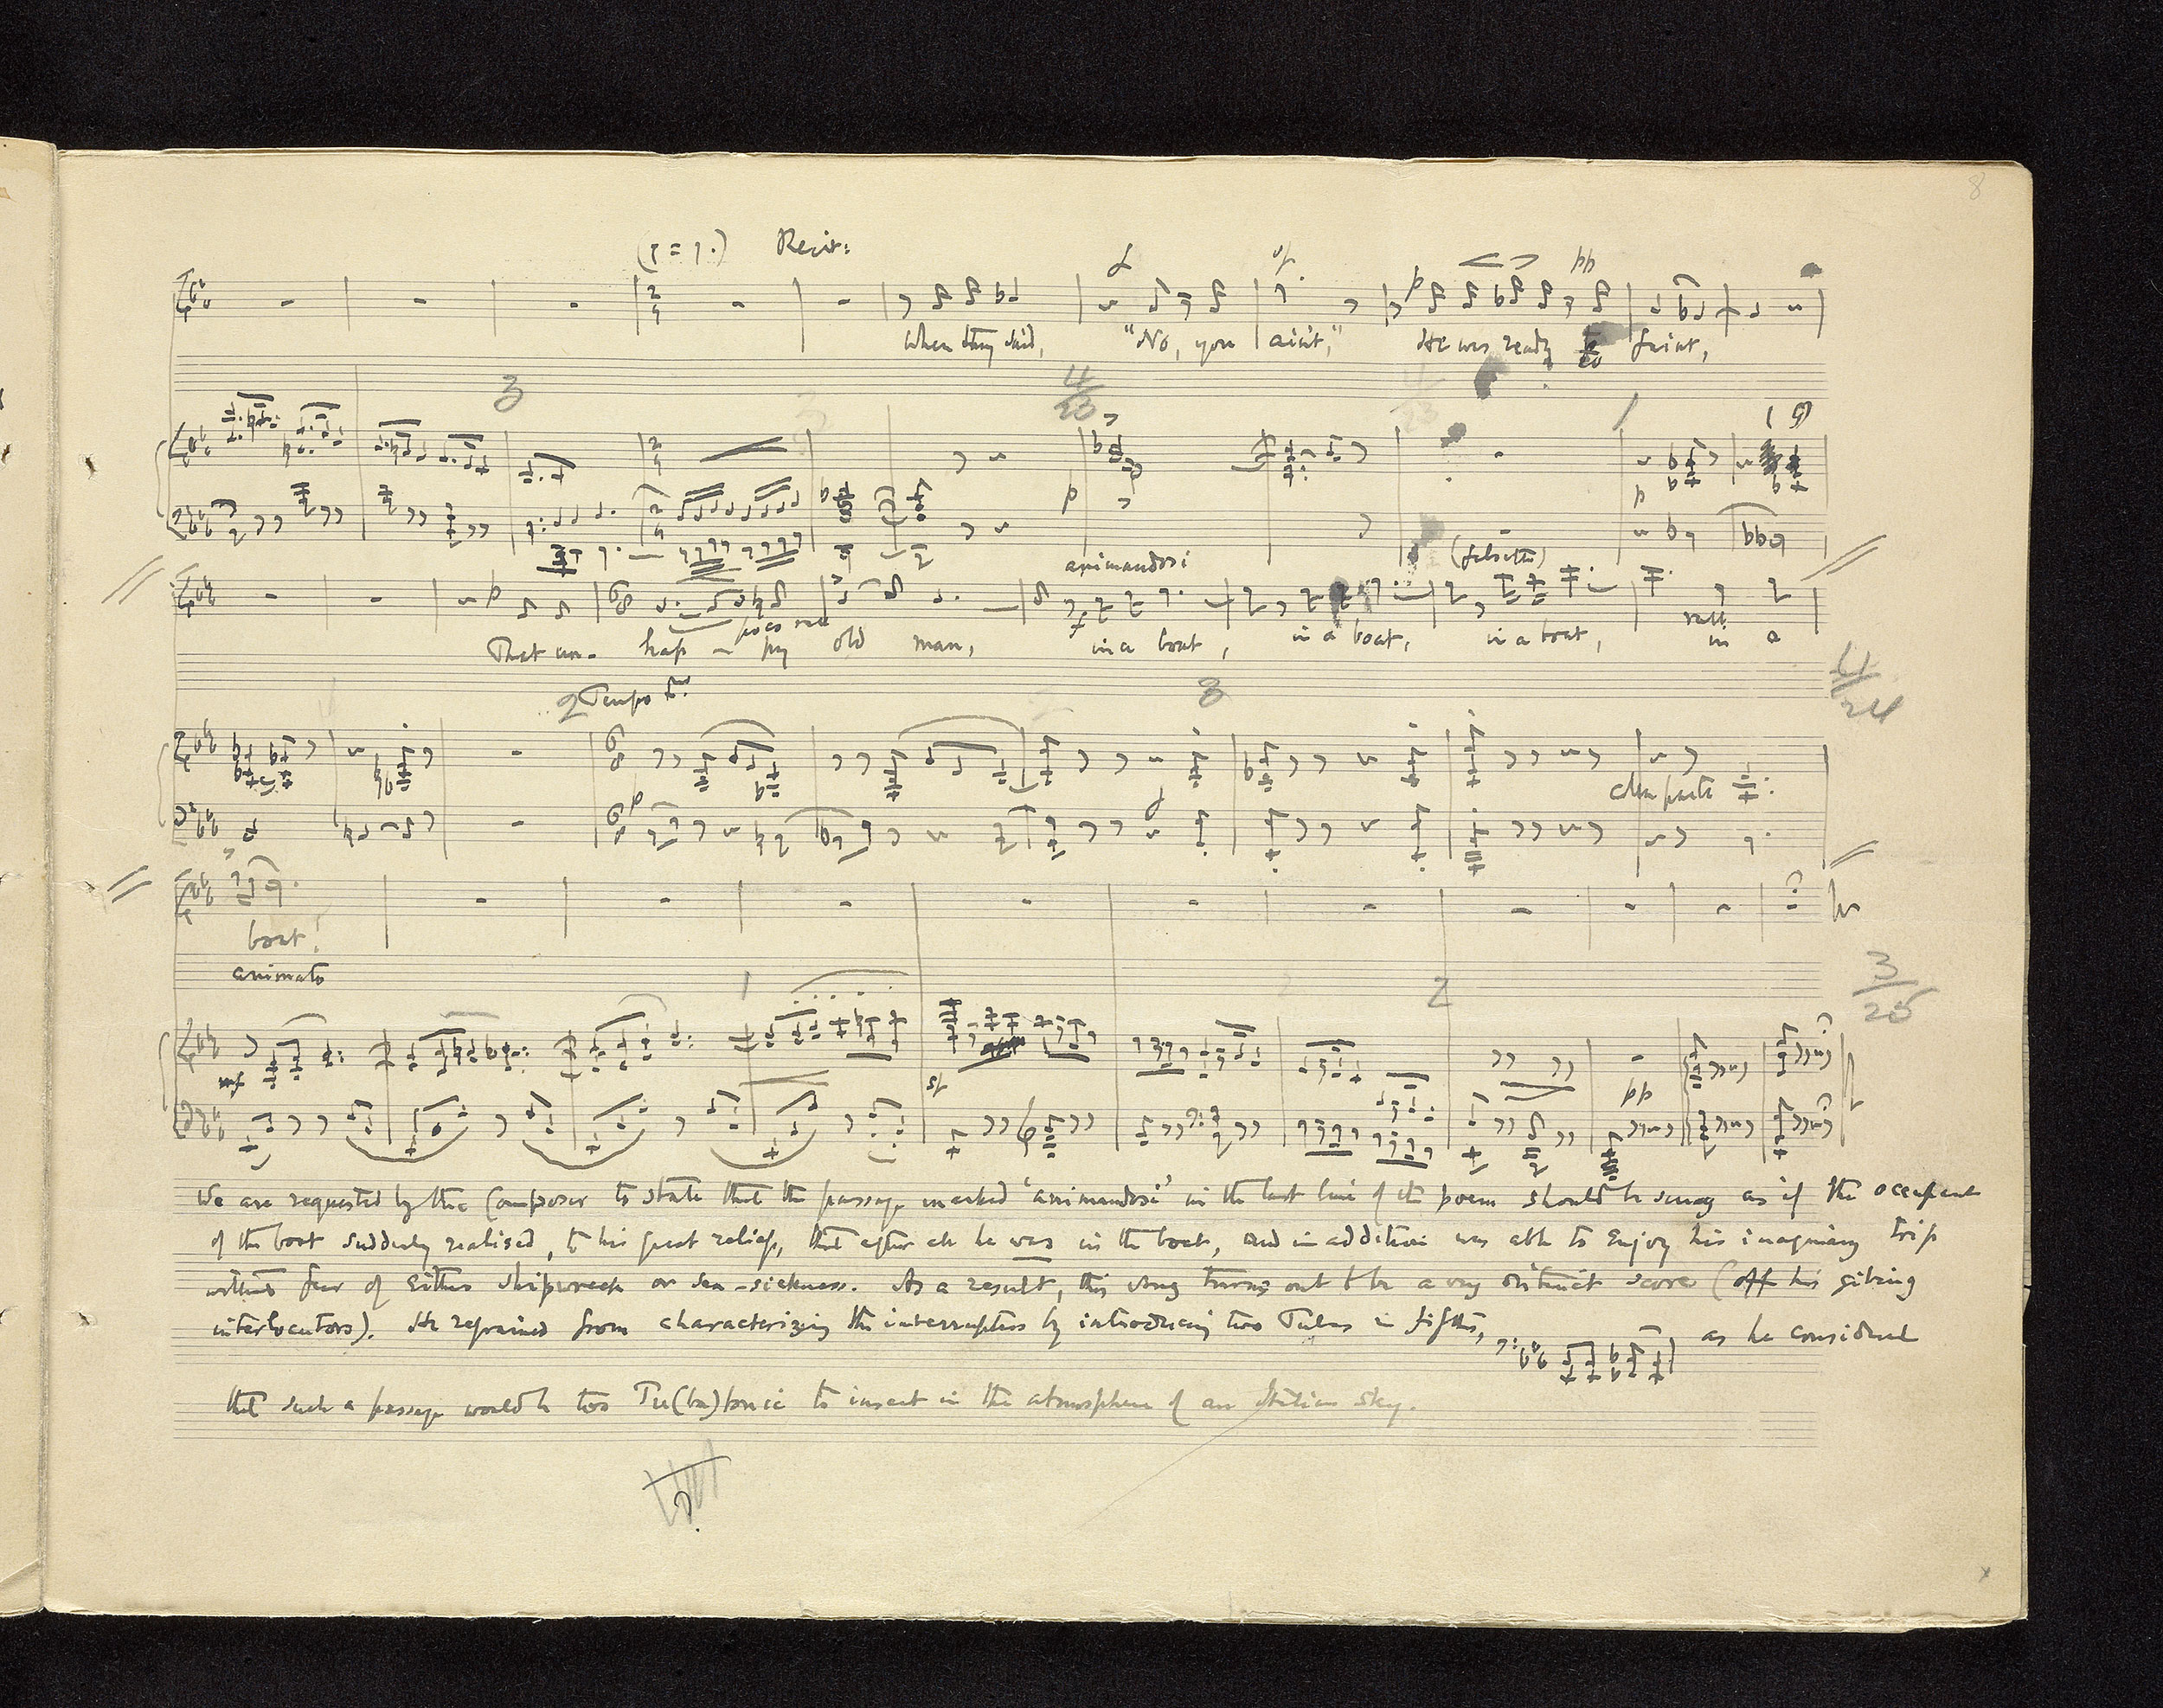 8
Recit:
f
sf
p
pp
When they said, "No, you ain't," He was ready to faint,
3
4/23
1
p
p
animandosi
(falsetto)
p
poco rall
f
rall
That un- hap - py old man, in a boat, in a boat, in a boat, in a
2 Tempo
3
4/24
p
f
colla parte
boat!
animato
1
2
3/25
mf
sf
pp
We are requested by the Composer to state that the passage marked "animandosi" in the last line of the poem should be sung as if the occupant
of the boat suddenly realised, to his great relief, that after all he was in the boat, and in addition was able to enjoy his imaginary trip
without fear of either shipwreck or sea-sickness. As a result, this song turns out to be a very distinct score (off his gibing
interlocutors). He refrained from characterizing the interrupters by introducing two Tubas in fifths, as he considered
that such a passage would be too Tu(ba)tonic to insert in the atmosphere of an Italian sky.